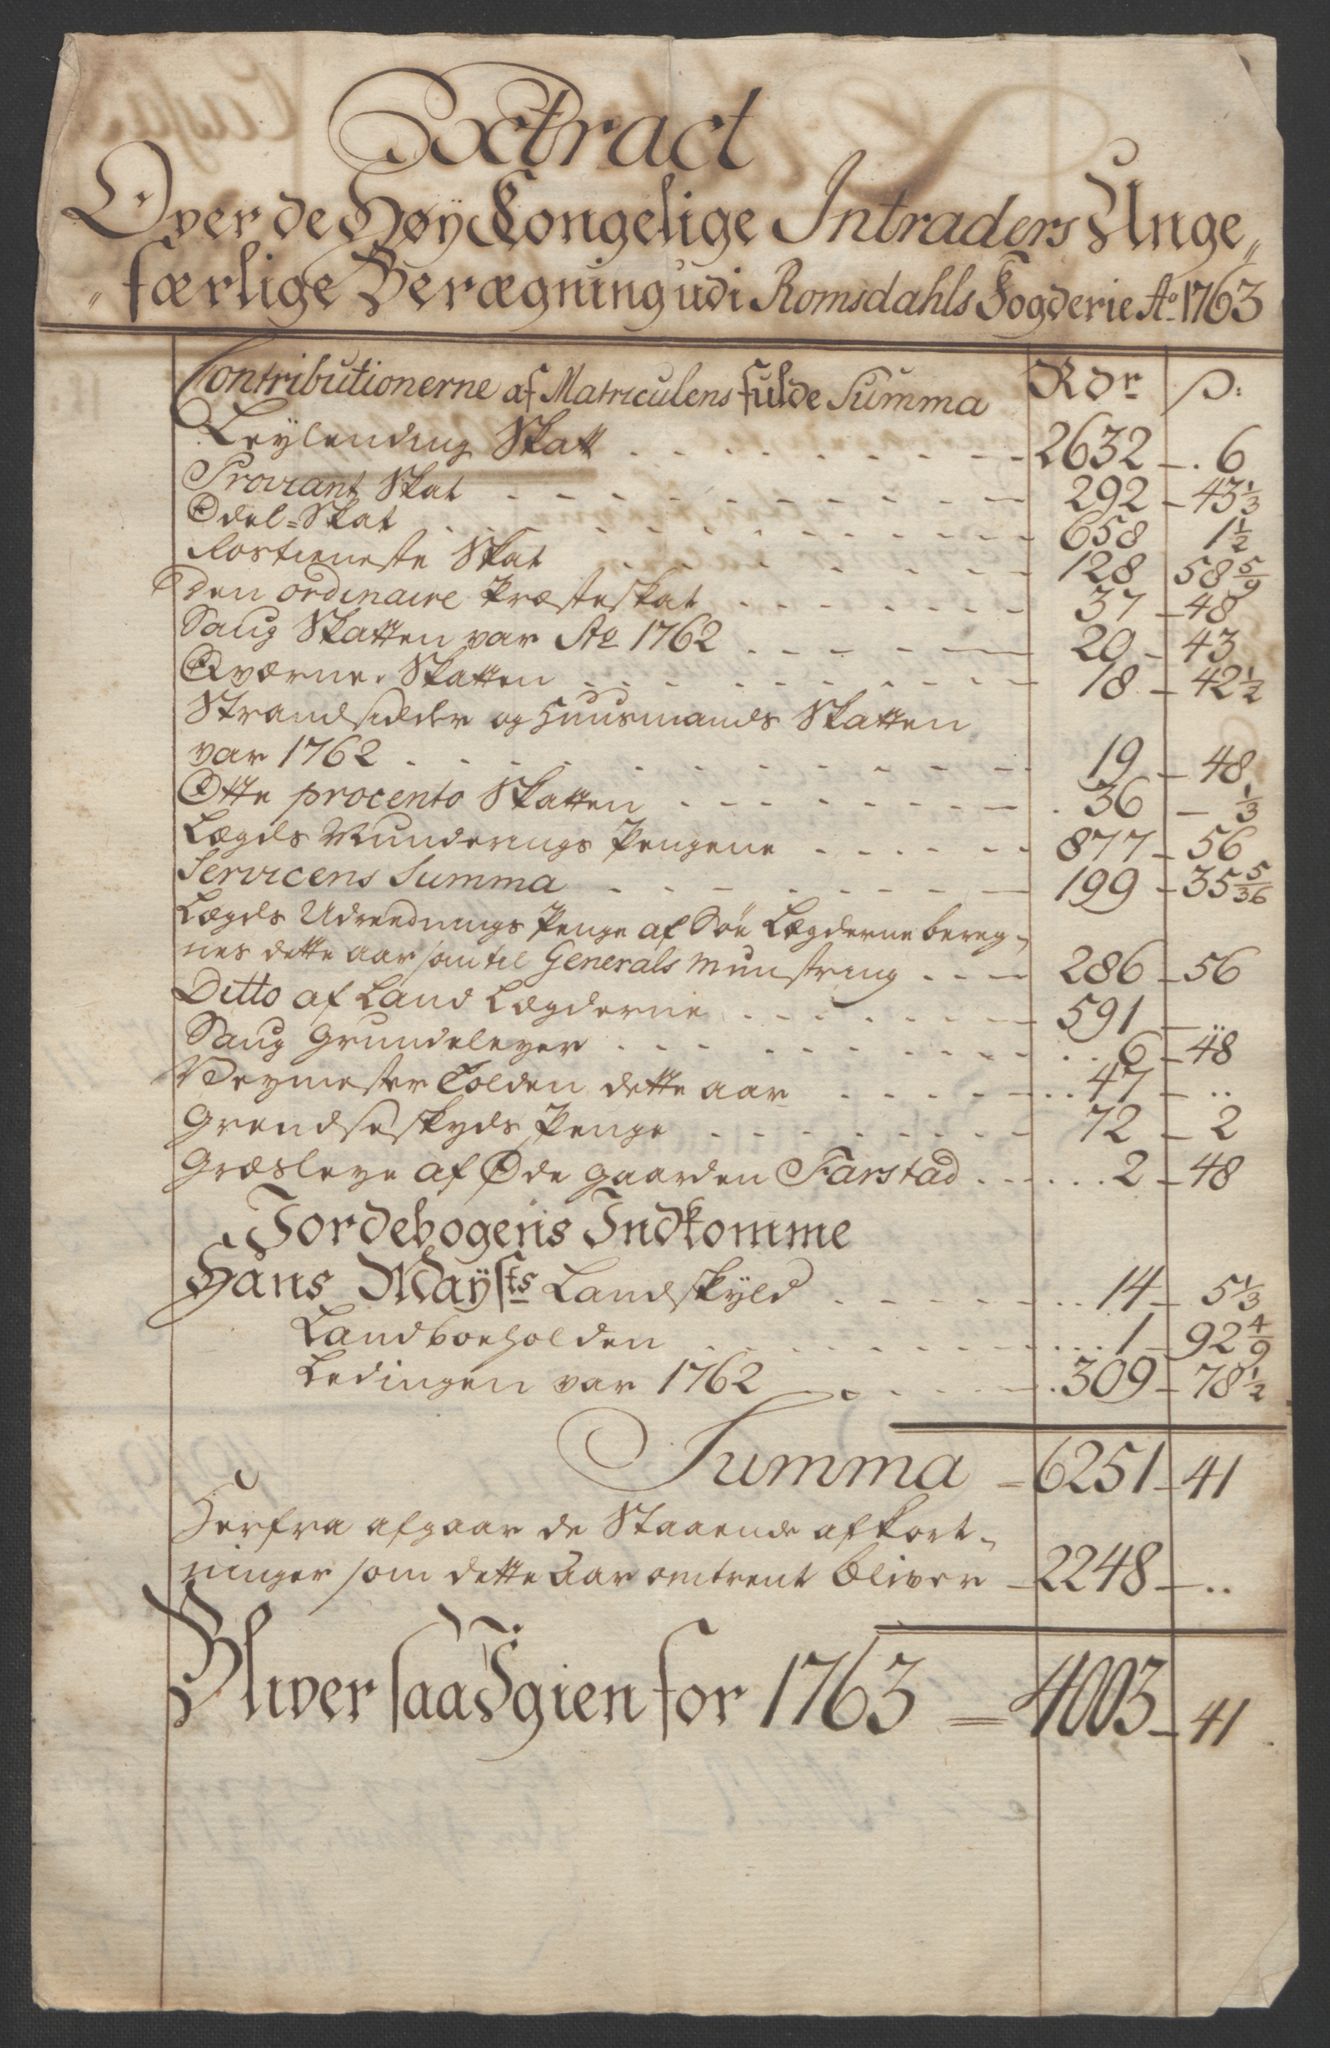 Extract
Over de Høy Kongelige Intraders Unge„
„færlige Berægning udi Romsdahls Fogderie Ao 1763
Contributionerne af Matriculens fulde Summa Rdr ß:
Leylending Skatt 2632 6
Proviant Skat 292 43 1/3
Odel=Skat 658 1 1/2
Rostieneste Skat 128 58 5/9
Den ordinaire Præsteskat 37 48
Saug Skatten var Ao 1762 20 43
Qværne Skatten 18 42 1/2
Strandsidder og Huusmands Skatten
var 1762 19 48
Otte procento Skatten 36 1/3
Lægds Munderings Pengene 877 56
Servicens Summa 199 35 5/36
Lægds Udreednings Penge af Søe Lægderne bereg-
nes dette aar som til Generals Munstring 286 56
Ditto af Land Lægderne 591 ..
Saug Grundeleyer 6 48
Veymester Tolden dette aar 47 ..
Grendseskyds Penge 72 2
Græsleye af Øde gaarden Farstad 2 48
Jordebogens Indkomme
Hans Mayts Landskyld 14 5 1/3
Landboeholden 1 92 4/9
Ledingen var 1762 309 78 1/2
Summa 6251 41
Herfra afgaar de Staaende afkort-
ninger som dette Aar omtrent bliver 2248 ..
Bliver saa Igien for 1763 = 4003 41